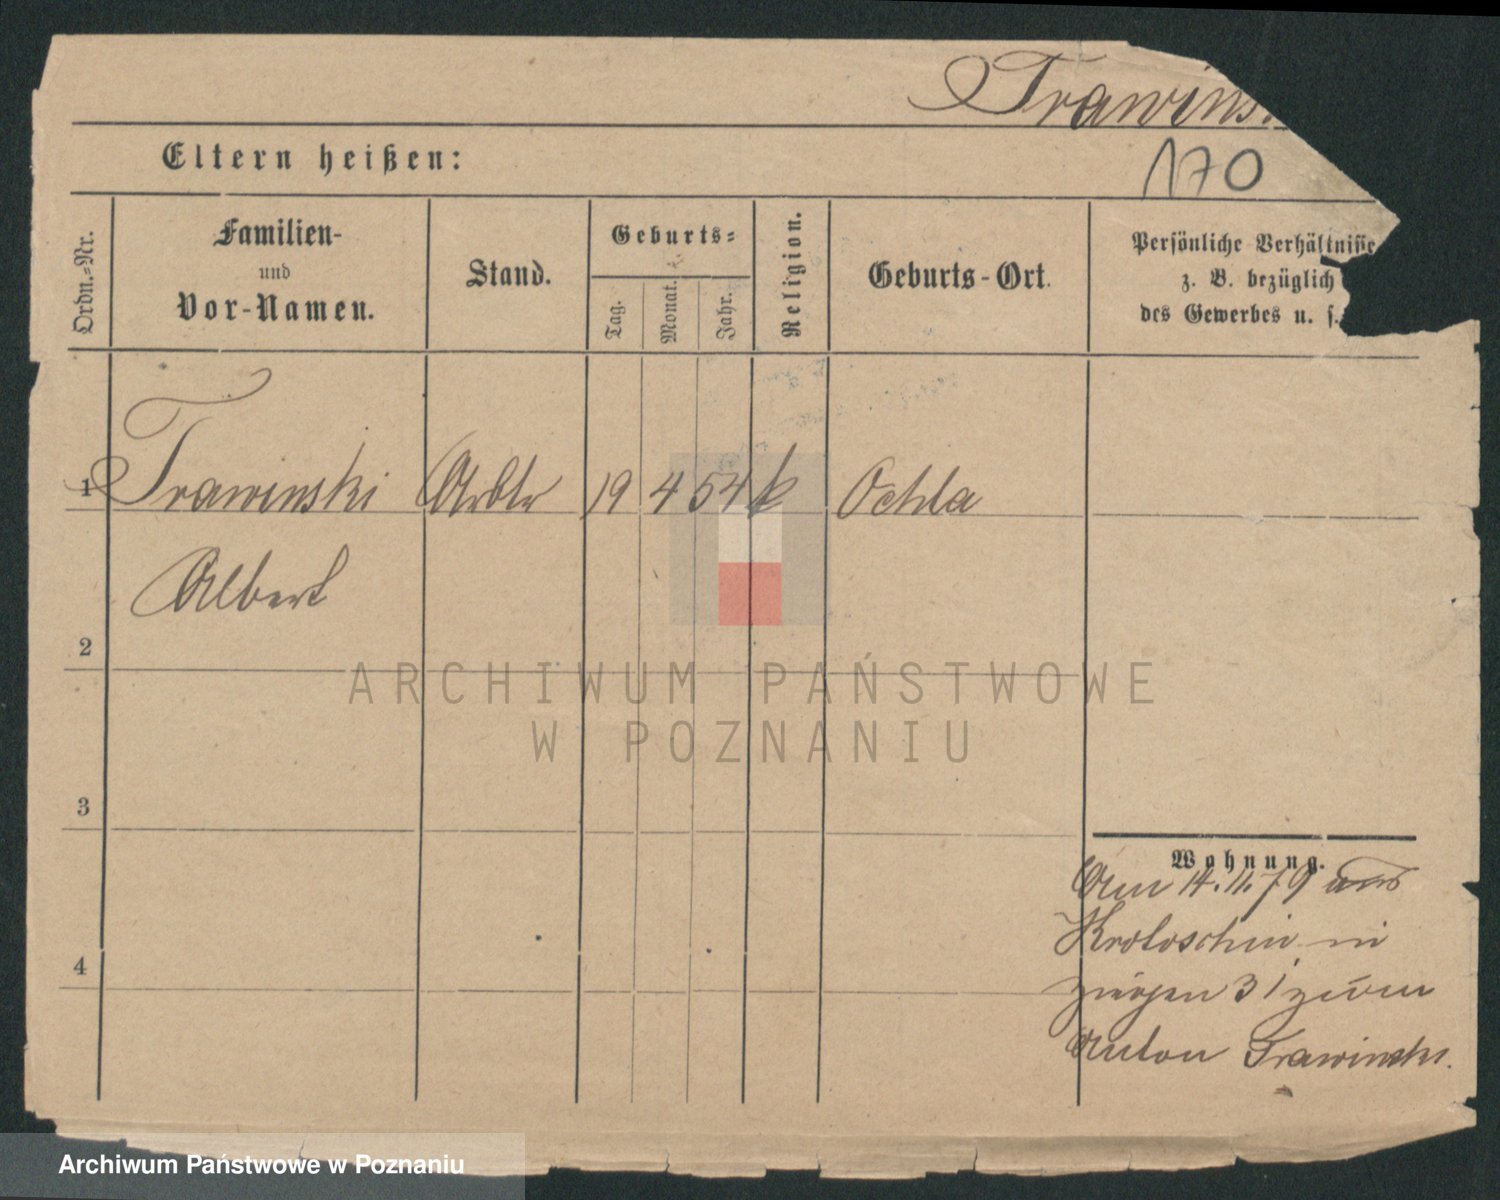 Trawins
Eltern heißen:
170
Ordn.-Nr.
Familien-
und
Vor-Namen.
Stand.
Geburts-
Tag.
Monat.
Jahr.
Religion.
Geburts-Ort.
Persönliche Verhältnisse
z. B. bezüglich
des Gewerbes u. s.
1 Trawinski Arbtr 19 4 54 k Ochla
Albert
2
ARCHIWUM PAŃSTWOWE
W POZNANIU
3
Wohnung.
Am 14.11.79 aus
Krotoschin in
4
31
Anton Trawinski.
Archiwum Państwowe w Poznaniu